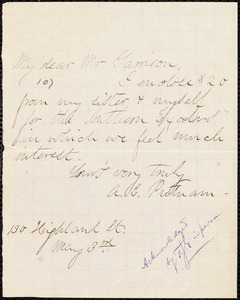 My dear Mr Garrison,
10)
I enclose $20
from my sister & myself
for the "Southern schools"
in which we feel much
interest.
Yours very truly
A. C. Putnam.
130 Highland St.
May 8th
Acknowledged
by in person